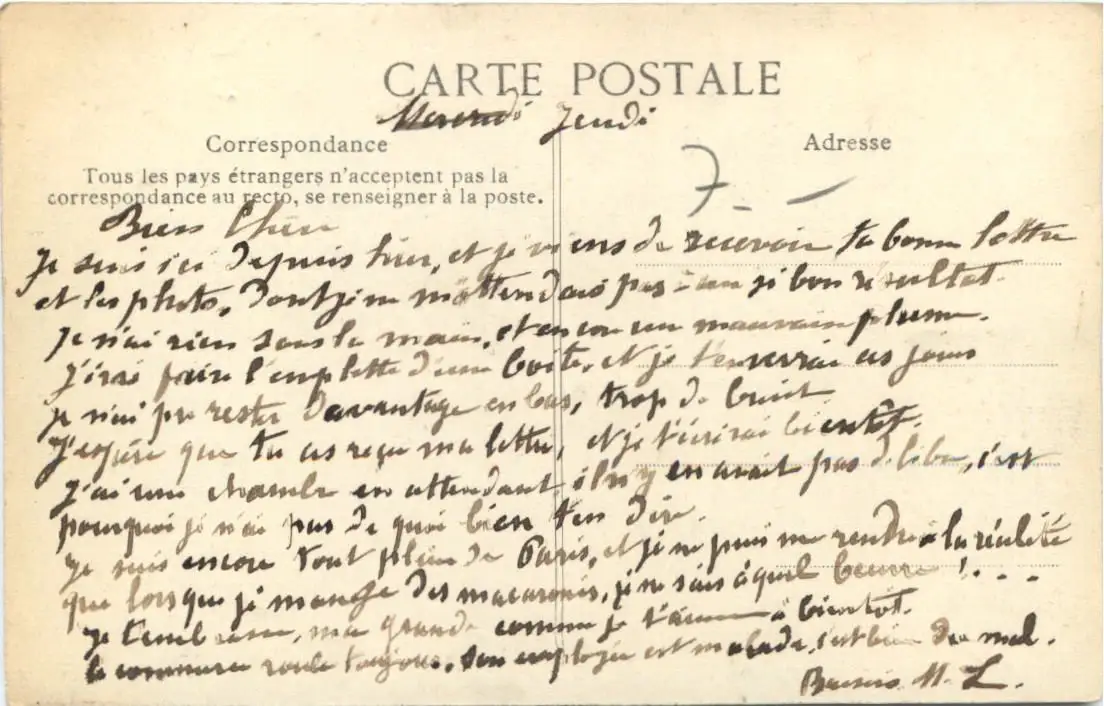 CARTE POSTALE
Mercredi Jeudi
Correspondance
Adresse
Tous les pays étrangers n'acceptent pas la
correspondance au recto, se renseigner à la poste.
7 -
Bien Chère
Je suis ici depuis hier, et je viens de recevoir ta bonne lettre
et les photos, dont je ne m'attendais pas à un si bon résultat.
Je n'ai rien sous la main, et encore une mauvaise plume.
J'irai faire l'emplette d'une boîte, et je t'enverrai ces jours
Je n'ai pu rester davantage en bas, trop de bruit
J'espère que tu as reçu ma lettre, et je t'écrirai bientôt.
J'ai une chambre en attendant, il n'y en avait pas de libre, c'est
pourquoi je n'ai pas de quoi bien t'en dire.
Je suis encore tout plein de Paris, et je ne puis me rendre à la réalité
que lorsque je mange des macaronis, je ne sais à quel beurre ! . . .
Je t'embrasse, ma grande comme je t'aime à bientôt.
le commerce roule toujours. Son employée est malade, c'est bien du mal.
Baisers M. L.